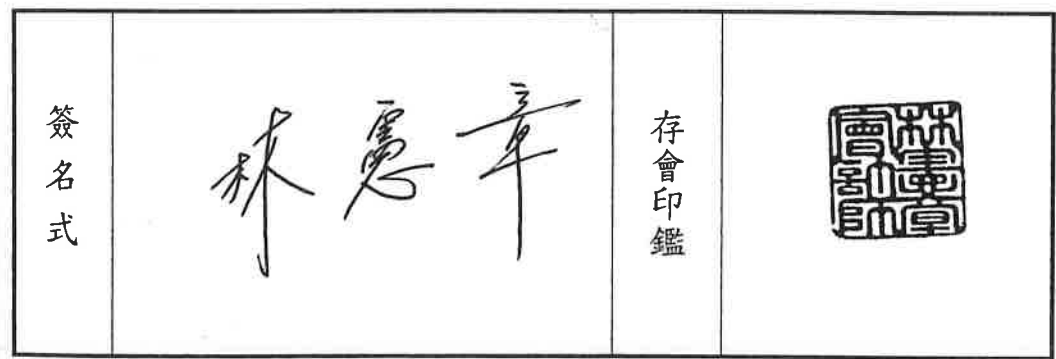 簽名式
林憲章
存會印鑑
林憲章
會計師